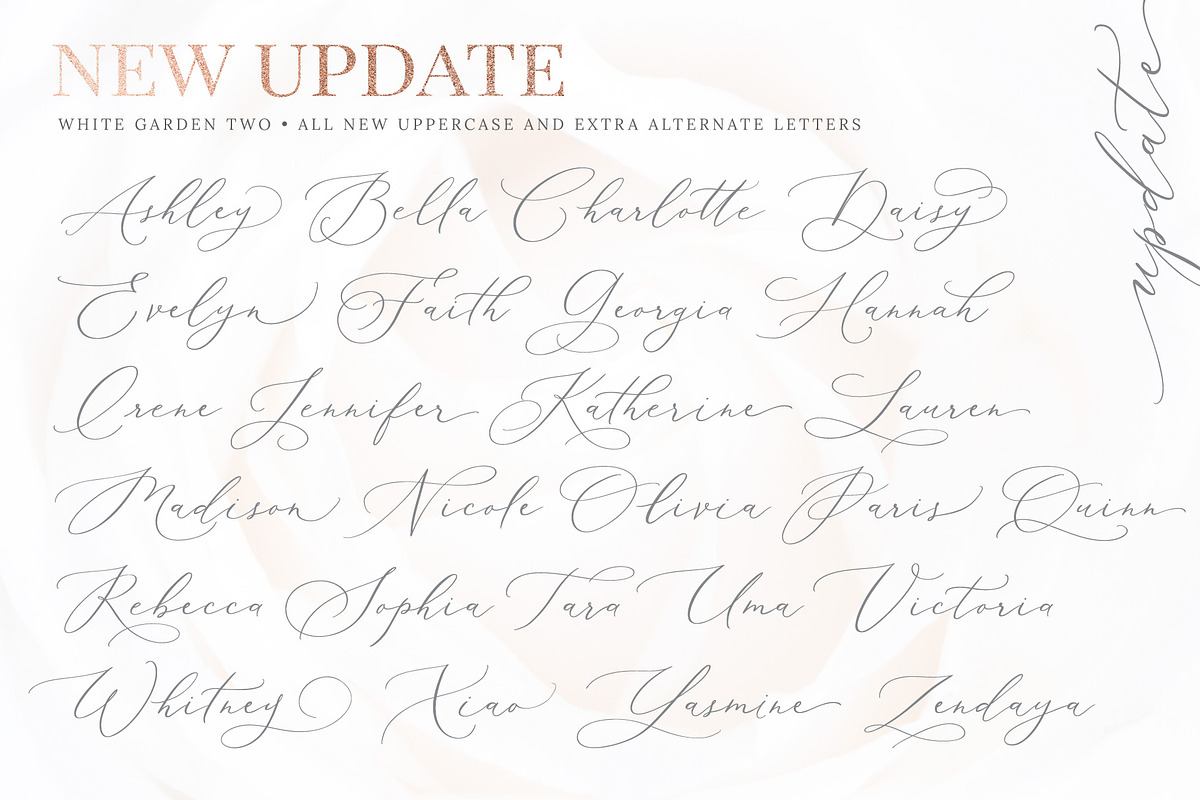 NEW UPDATE
WHITE GARDEN TWO • ALL NEW UPPERCASE AND EXTRA ALTERNATE LETTERS
Ashley Bella Charlotte Daisy
Evelyn Faith Georgia Hannah
Irene Jennifer Katherine Lauren
Madison Nicole Olivia Paris Quinn
Rebecca Sophia Tara Uma Victoria
Whitney Xiao Yasmine Zendaya
update